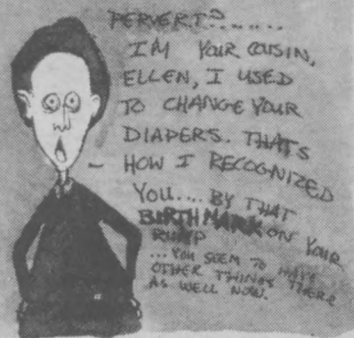 PERVERT?.......
I'M YOUR COUSIN,
ELLEN, I USED
TO CHANGE YOUR
DIAPERS. THATS
HOW I RECOGNIZED
YOU.... BY THAT
BIRTHMARK ON YOUR
RUMP
... YOU SEEM TO HAVE
OTHER THINGS THERE
AS WELL NOW.